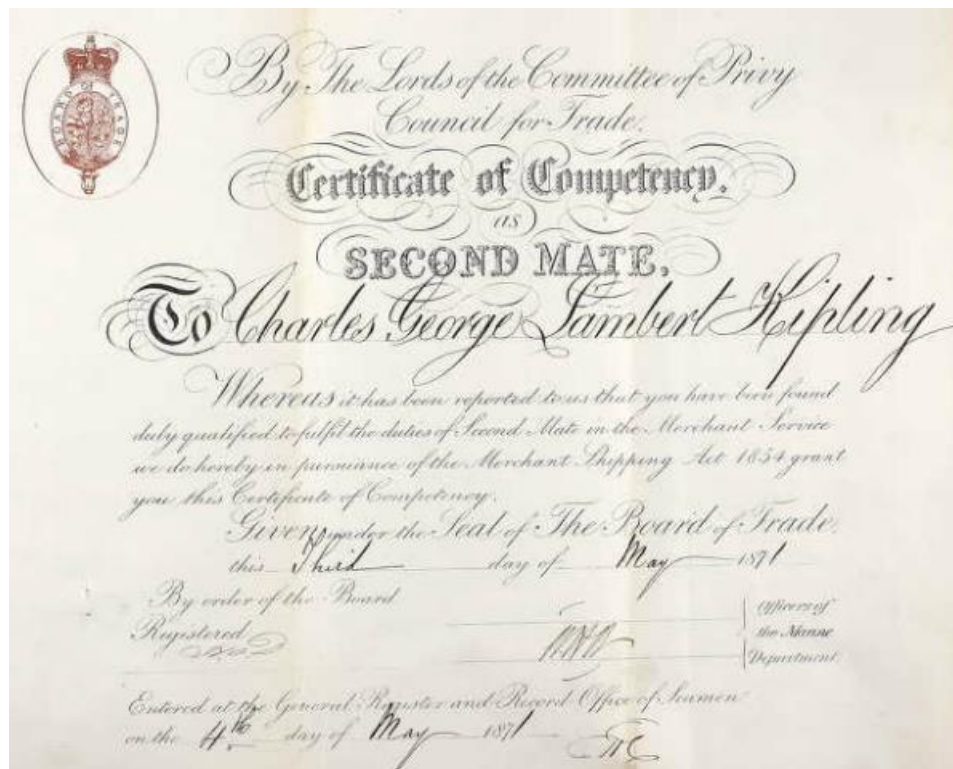 BOARD OF TRADE
By The Lords of the Committee of Privy
Council for Trade.
Certificate of Competency.
as
SECOND MATE.
To Charles George Lambert Kipling
Whereas it has been reported to us that you have been found
duly qualified to fulfil the duties of Second Mate in the Merchant Service
we do hereby in pursuance of the Merchant Shipping Act 1854 grant
you this Certificate of Competency.
Given under the Seal of The Board of Trade.
this Third day of May 1871
By order of the Board
Officers of
Registered
the Marine
Department
Entered at the General Register and Record Office of Seamen
on the 4th day of May 1871